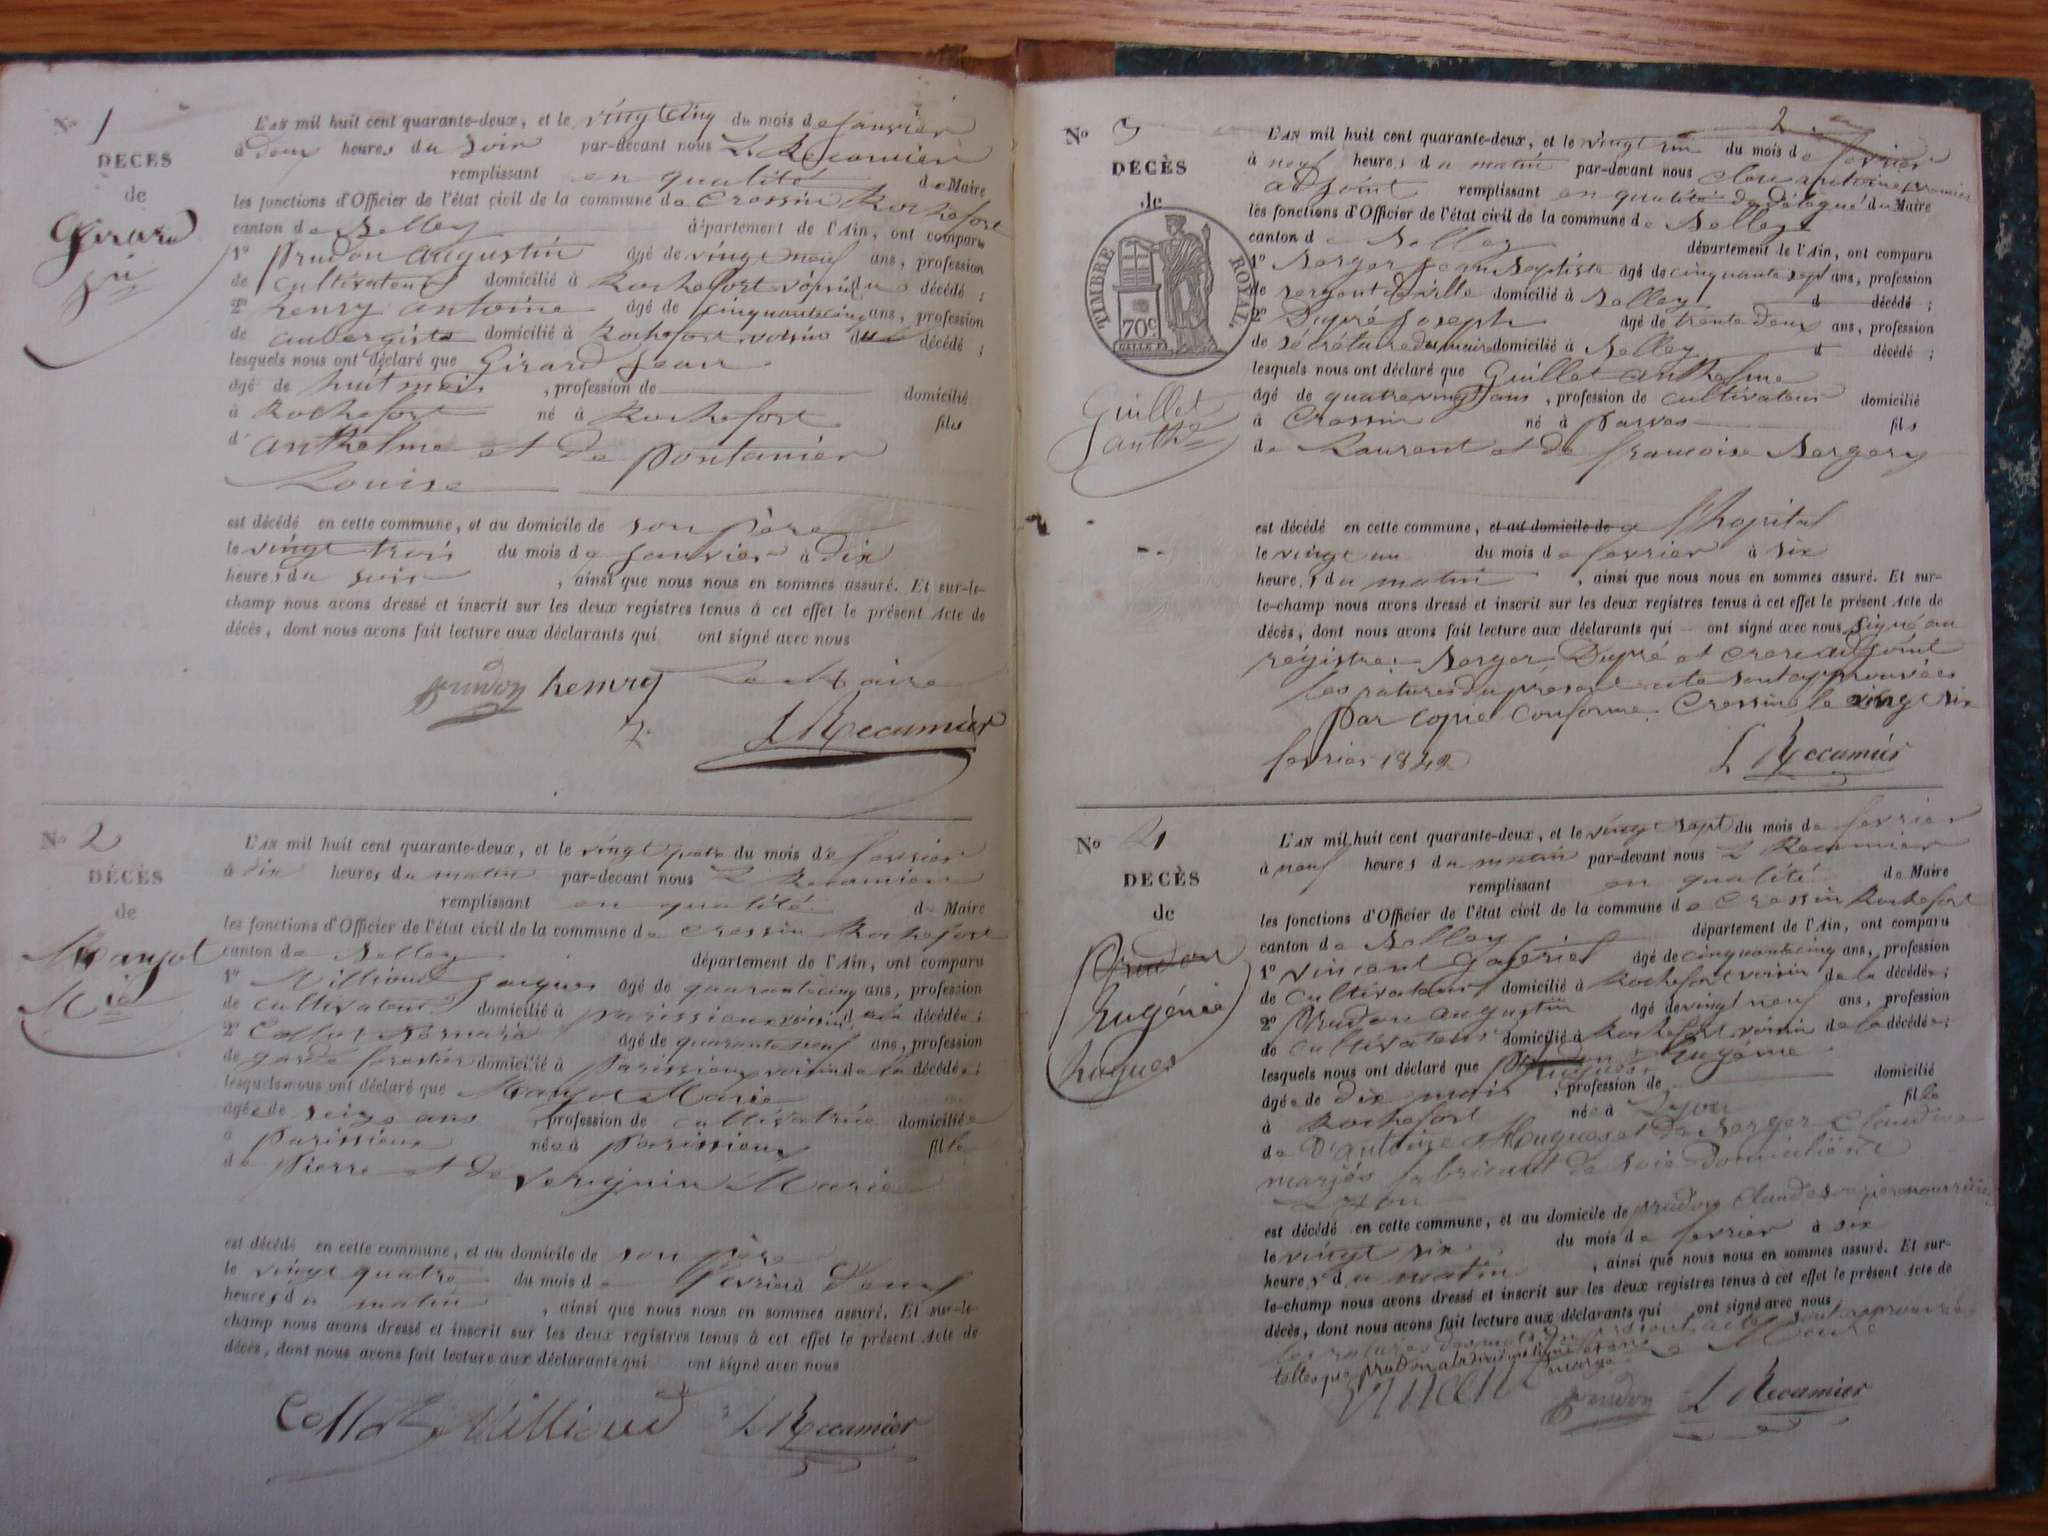 N° 1
DÉCÈS
de
Girard
Jn
L'AN mil huit cent quarante-deux, et le vingt cinq du mois de janvier
à deux heures du soir par-devant nous L. Recamier
remplissant en qualité de Maire
les fonctions d'Officier de l'état civil de la commune de Cressin Rochefort
canton de Belley département de l'Ain, ont comparu
1° Prudon augustin âgé de vingt neuf ans, profession
de cultivateur domicilié à Rochefort voisin du décédé ;
2° henry antoine âgé de cinquante cinq ans, profession
de aubergiste domicilié à Rochefort voisin du décédé ;
lesquels nous ont déclaré que Girard Jean
âgé de huit mois , profession de domicilié
à Rochefort né à Rochefort fils
d' anthelme et de pontanier
Louise
est décédé en cette commune, et au domicile de son père
le vingt trois du mois de janvier à dix
heures du soir , ainsi que nous nous en sommes assuré. Et sur-le-
champ nous avons dressé et inscrit sur les deux registres tenus à cet effet le présent Acte de
décès, dont nous avons fait lecture aux déclarants qui ont signé avec nous
prudon henry Le Maire
L Recamier
N° 2
DÉCÈS
de
Manjot
Mie
L'AN mil huit cent quarante-deux, et le vingt quatre du mois de fevrier
à dix heures du matin par-devant nous L Recamier
remplissant en qualité de Maire
les fonctions d'Officier de l'état civil de la commune de Cressin Rochefort
canton de Belley département de l'Ain, ont comparu
1° Millioud Jacques âgé de quarante cinq ans, profession
de cultivateur domicilié à parissieux voisin de la décédée ;
2° Collot Bernard âgé de quarante neuf ans, profession
de garde forestier domicilié à Parissieux voisin de la décédée ;
lesquels nous ont déclaré que Manjot Marie
âgée de seize ans , profession de cultivatrice domiciliée
à parissieux née à parissieux fille
de Pierre et de Marie
est décédé en cette commune, et au domicile de son père
le vingt quatre du mois de fevrier à
heures du matin , ainsi que nous nous en sommes assuré. Et sur-le-
champ nous avons dressé et inscrit sur les deux registres tenus à cet effet le présent Acte de
décès, dont nous avons fait lecture aux déclarants qui ont signé avec nous
Collot Millioud L Recamier
2
N° 3
DÉCÈS
de
TIMBRE ROYAL
70 c
Guillet
anthe
L'AN mil huit cent quarante-deux, et le vingt un du mois de fevrier
à neuf heures du matin par-devant nous antoine premier
adjoint remplissant en qualité de délégué du Maire
les fonctions d'Officier de l'état civil de la commune de Belley
canton de Belley département de l'Ain, ont comparu
1° Berger Jean Baptiste âgé de cinquante sept ans, profession
de sergent de ville domicilié à Belley d décédé ;
2° Dupré Joseph âgé de trente deux ans, profession
de secrétaire du maire domicilié à Belley d décédé ;
lesquels nous ont déclaré que Guillet anthelme
âgé de quatre vingt ans , profession de cultivateur domicilié
à Cressin né à Parves fils
de Laurent et de francoise Bergery
est décédé en cette commune, et au domicile de a l'hopital
le vingt un du mois de fevrier à six
heures du matin , ainsi que nous nous en sommes assuré. Et sur-
le-champ nous avons dressé et inscrit sur les deux registres tenus à cet effet le présent Acte de
décès, dont nous avons fait lecture aux déclarants qui ont signé avec nous signé au
régistre: Berger Dupré et adjoint
les ratures du présent acte sont approuvées
par copie conforme Cressin le vingt six
fevrier 1842 L Recamier
N° 4
DÉCÈS
de
Prudon
Eugénie
hugues
L'AN mil huit cent quarante-deux, et le vingt sept du mois de fevrier
à neuf heures du matin par-devant nous L Recamier
remplissant en qualité de Maire
les fonctions d'Officier de l'état civil de la commune de Cressin Rochefort
canton de Belley département de l'Ain, ont comparu
1° vincent gabriel âgé de cinquante cinq ans, profession
de cultivateur domicilié à Rochefort voisin de la décédée ;
2° Prudon augustin âgé de vingt neuf ans, profession
de cultivateur domicilié à Rochefort voisin de la décédée ;
lesquels nous ont déclaré que Prudon Eugénie
hugues
âgée de dix mois , profession de domicilié
à Rochefort née à Lyon fille
de D'antoine Hugues et de Berger Claudine
mariés fabricant de soie domiciliés à
Lyon
est décédé en cette commune, et au domicile de prudon Claude son père nourricier
le vingt six du mois de fevrier à six
heures du matin , ainsi que nous nous en sommes assuré. Et sur-
le-champ nous avons dressé et inscrit sur les deux registres tenus à cet effet le présent Acte de
décès, dont nous avons fait lecture aux déclarants qui ont signé avec nous
les ratures des mots du présent acte sont approuvées
telles que prudon marge Le Maire
vincent prudon L Recamier